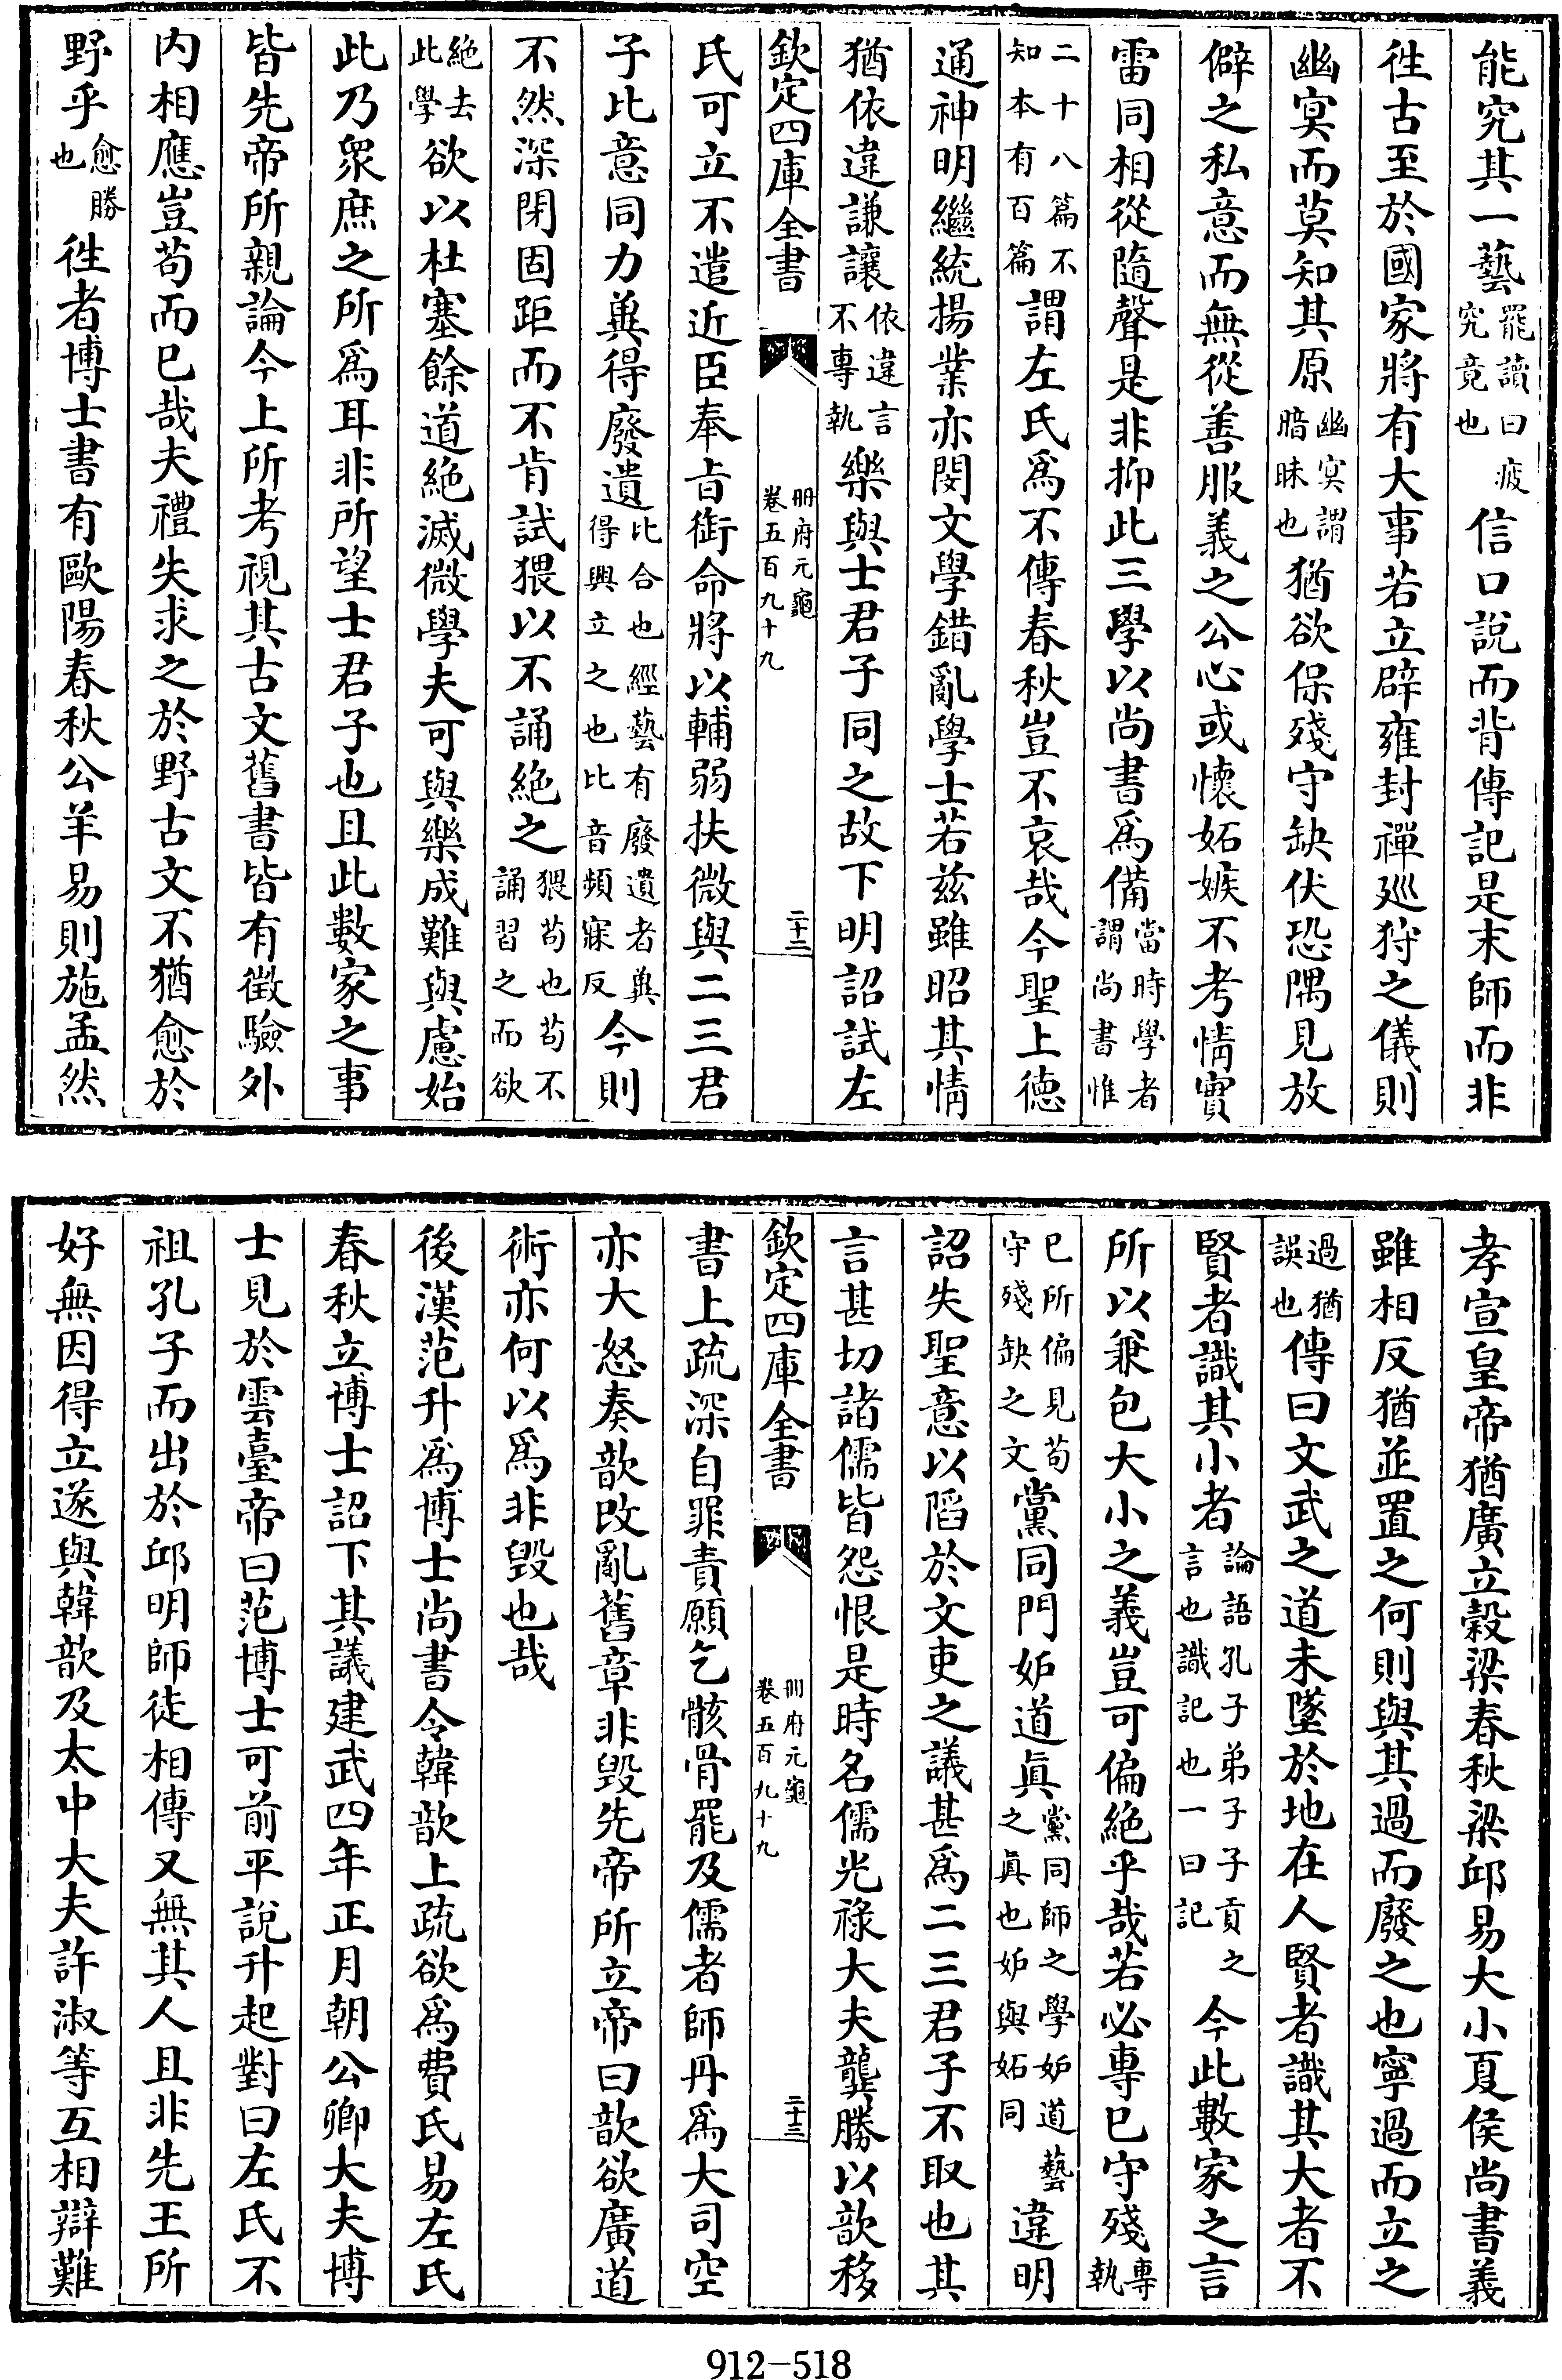 能究其一藝罷讀曰疲究竟也信口說而背傳記是末師而非
徃古至於國家將有大事若立辟雍封禪廵狩之儀則
幽冥而莫知其原幽冥謂暗昧也猶欲保殘守缺伏恐隅見放
僻之私意而無從善服義之公心或懷妬嫉不考情實
雷同相從隨聲是非抑此三學以尚書為備當時學者謂尚書惟
二十八篇不知本有百篇謂左氏為不傳春秋豈不哀哉今聖上德
通神明繼統揚業亦閔文學錯亂學士若兹雖昭其情
猶依違謙讓依違言不專執樂與士君子同之故下明詔試左
欽定四庫全書 冊府元龜 卷五百九十九 二十二
氏可立不遣近臣奉㫖銜命將以輔弱扶微與二三君
子比意同力兾得廢遺比合也經藝有廢遺者兾得興立之也比音頻寐反今則
不然深閉固距而不肯試猥以不誦絶之猥苟也苟不誦習之而欲
絶去此學欲以杜塞餘道絶滅微學夫可與樂成難與慮始
此乃衆庶之所為耳非所望士君子也且此數家之事
皆先帝所親論今上所考視其古文舊書皆有徵驗外
内相應豈苟而已哉夫禮失求之於野古文不猶愈於
野乎愈勝也徃者博士書有歐陽春秋公羊易則施孟然
孝宣皇帝猶廣立穀梁春秋梁邱易大小夏侯尚書義
雖相反猶並置之何則與其過而廢之也寧過而立之
過猶誤也傳曰文武之道未墜於地在人賢者識其大者不
賢者識其小者論語孔子弟子子貢之言也識記也一曰記今此數家之言
所以兼包大小之義豈可偏絶乎哉若必專已守殘專執
已所偏見苟守殘缺之文黨同門妒道真黨同師之學妒道藝之真也妒與妬同違明
詔失聖意以陷於文吏之議甚為二三君子不取也其
言甚切諸儒皆怨恨是時名儒光祿大夫龔勝以歆移
欽定四庫全書 冊府元龜 卷五百九十九 二十三
書上疏深自罪責願乞骸骨罷及儒者師丹為大司空
亦大怒奏歆改亂舊章非毀先帝所立帝曰歆欲廣道
術亦何以為非毀也哉
後漢范升為博士尚書令韓歆上疏欲為費氏易左氏
春秋立博士詔下其議建武四年正月朝公卿大夫博
士見於雲臺帝曰范博士可前平說升起對曰左氏不
祖孔子而出於邱明師徒相傳又無其人且非先王所
好無因得立遂與韓歆及太中大夫許淑等互相辯難
912-518